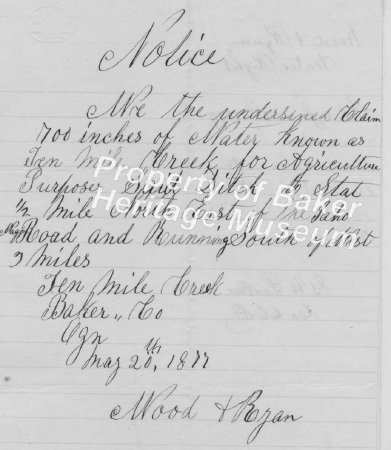 Notice
We the undersined Claim
700 inches of Water Known as
Ten Mile Creek for Agriculture
Purposes Said Ditch to Stat
1/2 Mile North East of the
Road and Running South of West
3 Miles
Ten Mile Creek
Baker,, Co
Ogn
May 20th, 1877
Wood & Ryan
Property of Baker
Heritage Museum